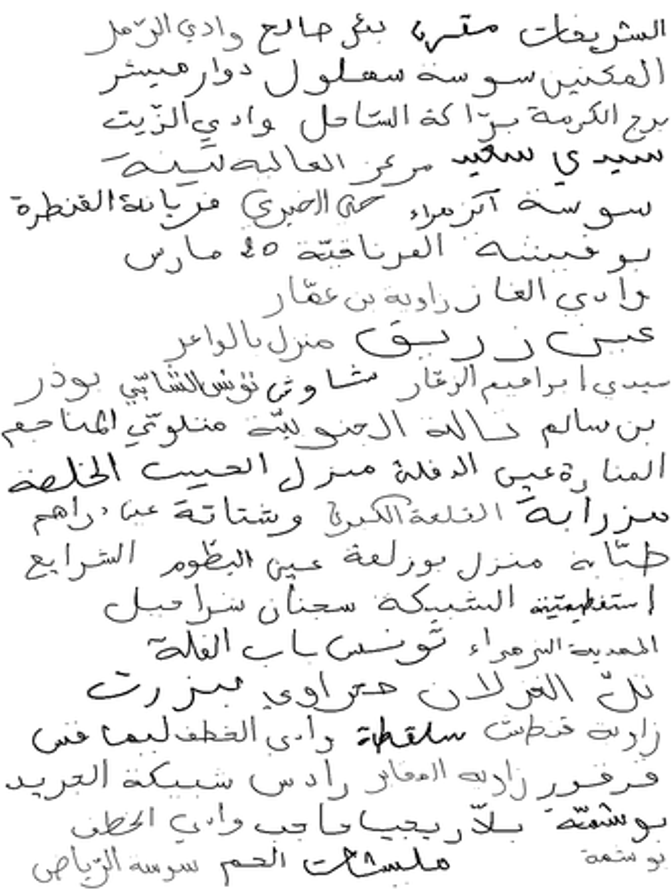 الشريفات مقرن بئر صالح وادي الرّمل
المكنين سوسة سهلول دوار ميشر
برج الكرمة برّاكة السّاحل وادي الزّيت
سيدي سعيد مركز العالية تبينة
سوسة الزهراء حي الخيري فريانة القنطرة
بو فيشة العرنافيّة 25 مارس
وادي الغار زاوية بن عمّار
عين زريق منزل بالواعر
سيدي ابراهيم الزهّار شاوش تونس الشّابّي بوذر
بن سالم تالة الجنوبيّة متلوّي المناجم
المنارة عين الدفلة منزل الحبيب الخلصة
مزرابة القلعة الكبرى وشتاتة عين دراهم
طبّابة منزل بوزلفة عين البطّوم الشرايع
استفطيمية الشبيكة سجنان شراحيل
المدينة الزهراء تونس باب العلة
تلّ الغزلان حزاوي بنزرت
زاوية قنطش سلقطة وادي الخطف ليماقس
قرقور زاوية المغايز رادس شبيكة الجريد
بوشمّة بلّاريجيا حاجب وادي الخطف
بوشمة ملستات الجم سوسة الرّياض